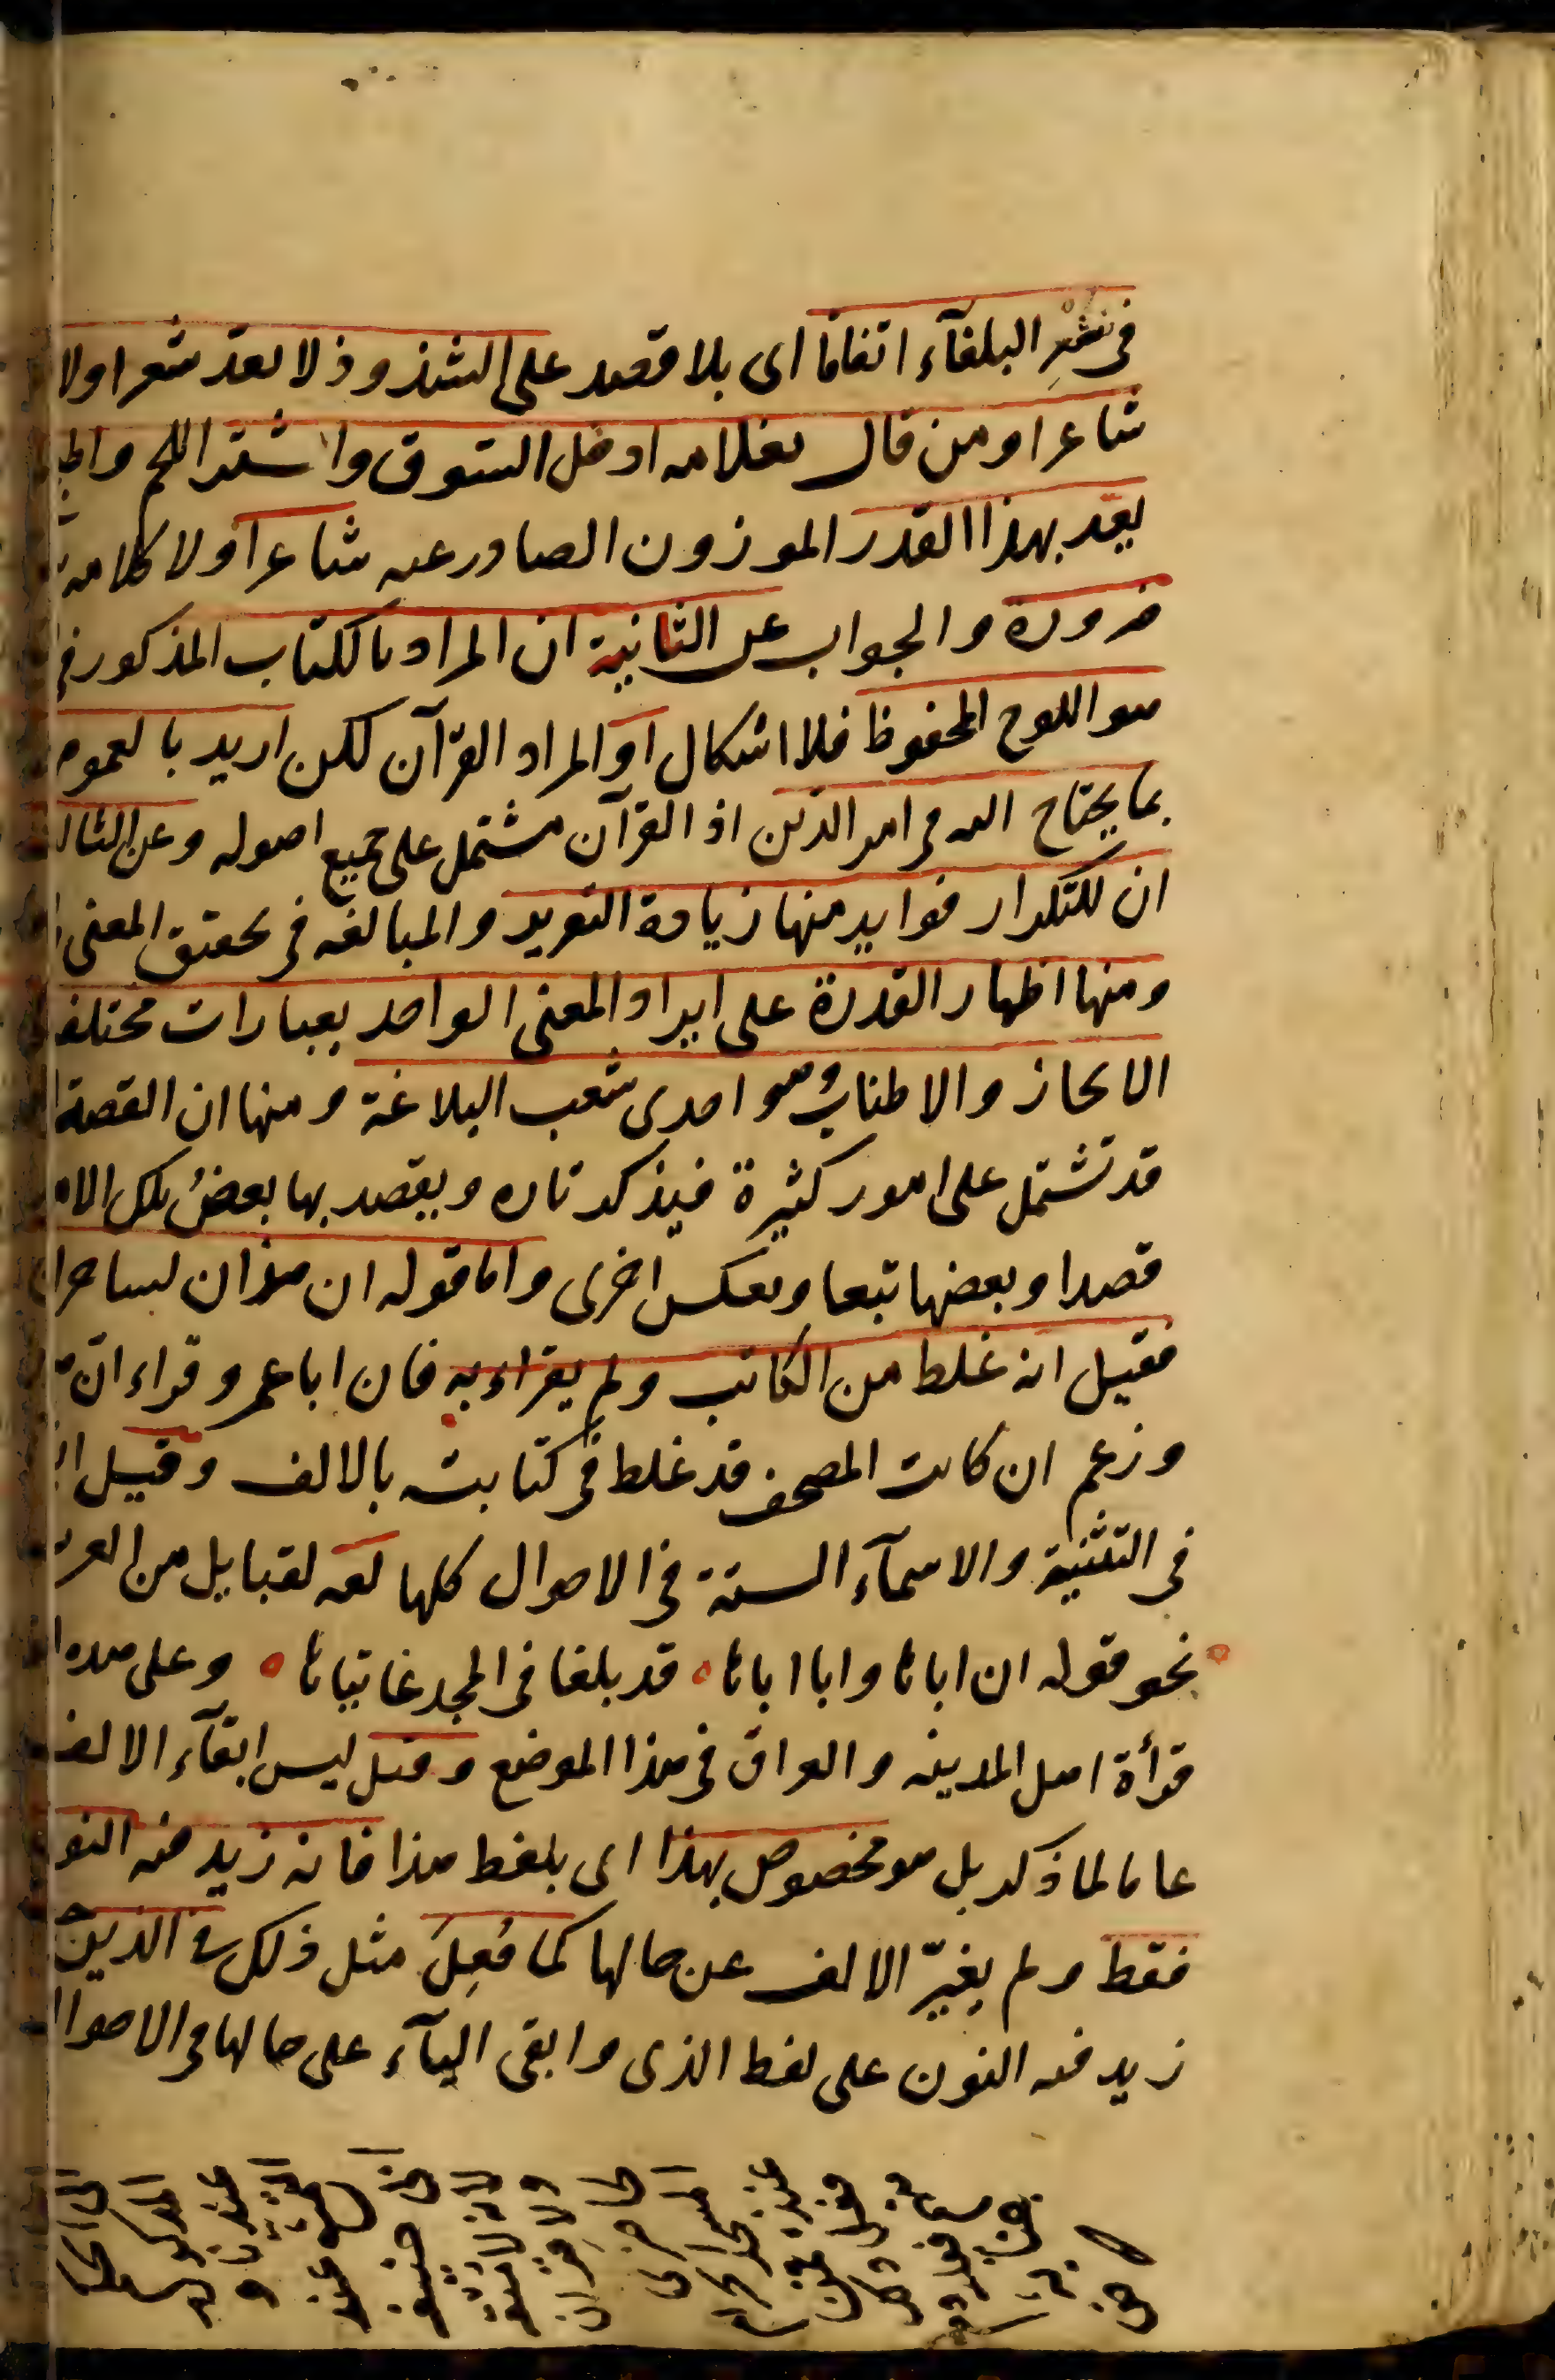 في نثر البلغآء اتفاقا اى بلا قصد على الشذوذ لا يعد شعرا ولا
شاعرا ومن قال لغلامه ادخل السّوق واشتر اللحم واطبخ
يعد بهذا القدر الموزون الصادر عنه شاعرا ولا كلامه
ضرورة والجواب عن الثانية ان المراد بالكتاب المذكور في
هو اللوح المحفوظ فلا اشكال او المراد القرآن لكن اريد بالعموم
بما يحتاج اليه في امر الدّين اذ القرآن مشتمل على جميع اصوله وعن الثالث
ان للتكرار فوايد منها زيادة التقرير والمبالغة في تحقيق المعنى
ومنها اظهار القدرة على ايراد المعنى الواحد بعبارات مختلفة
الايجاز والاطناب وهو احدى شعب البلاغة ومنها ان القصة
قد تشتمل على امور كثيرة فيذكر تارة ويقصد بها بعض تلك الامور
قصدا وبعضها تبعا وبعكس اخرى واما قوله ان هذان لساحران
فقيل انه غلط من الكاتب ولم يقراء به فان ابا عمرو قراء انّ
وزعم ان كاتب المصحف قد غلط في كتابته بالالف وقيل
في التثنية والاسمآء الستة في الاحوال كلها لغة لقبايل من العرب
نحو قوله ان اباها وابا اباها ٥ قد بلغا في المجد غايتاها ٥ وعلى هذه
قرأة اهل المدينة والعراق في هذا الموضع وقيل ليس ابقآء الالف
عاما لما ذكر بل هو مخصوص بهذا اى بلفظ هذا فانه زيد فيه النون
فقط ولم يغيّر الالف عن حالها كما فُعِلَ مثل ذلك في الذين
زيد فيه النون على لفظ الذى وابقى اليآء على حالها في الاحوال